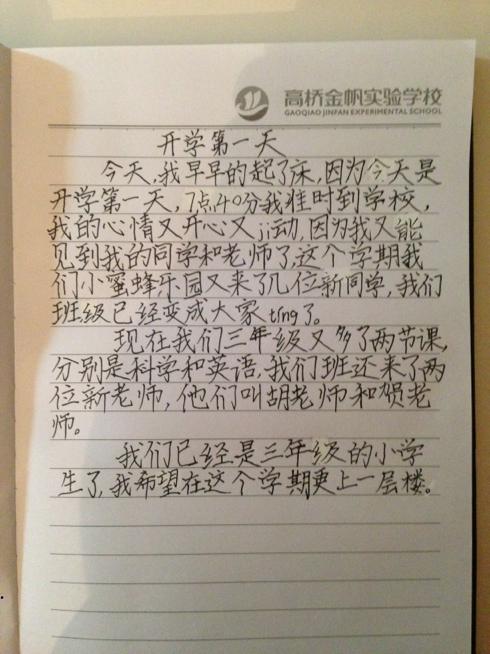 高桥金帆实验学校
GAOQIAO JINFAN EXPERIMENTAL SCHOOL
开学第一天
今天,我早早的起了床,因为今天是
开学第一天,7点40分我准时到学校,
我的心情又开心又ji动,因为我又能
见到我的同学和老师了,这个学期我
们小蜜蜂乐园又来了几位新同学,我们
班级已经变成大家tíng了。
现在我们三年级又多了两节课,
分别是科学和英语,我们班还来了两
位新老师,他们叫胡老师和老
师。
我们已经是三年级的小学
生了,我希望在这个学期更上一层楼。